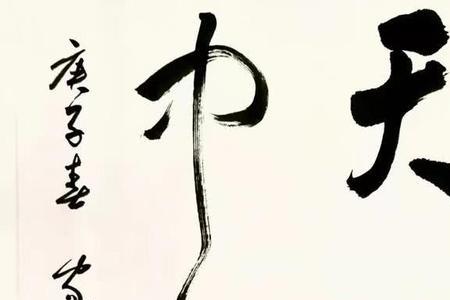 天
巾
庚子春